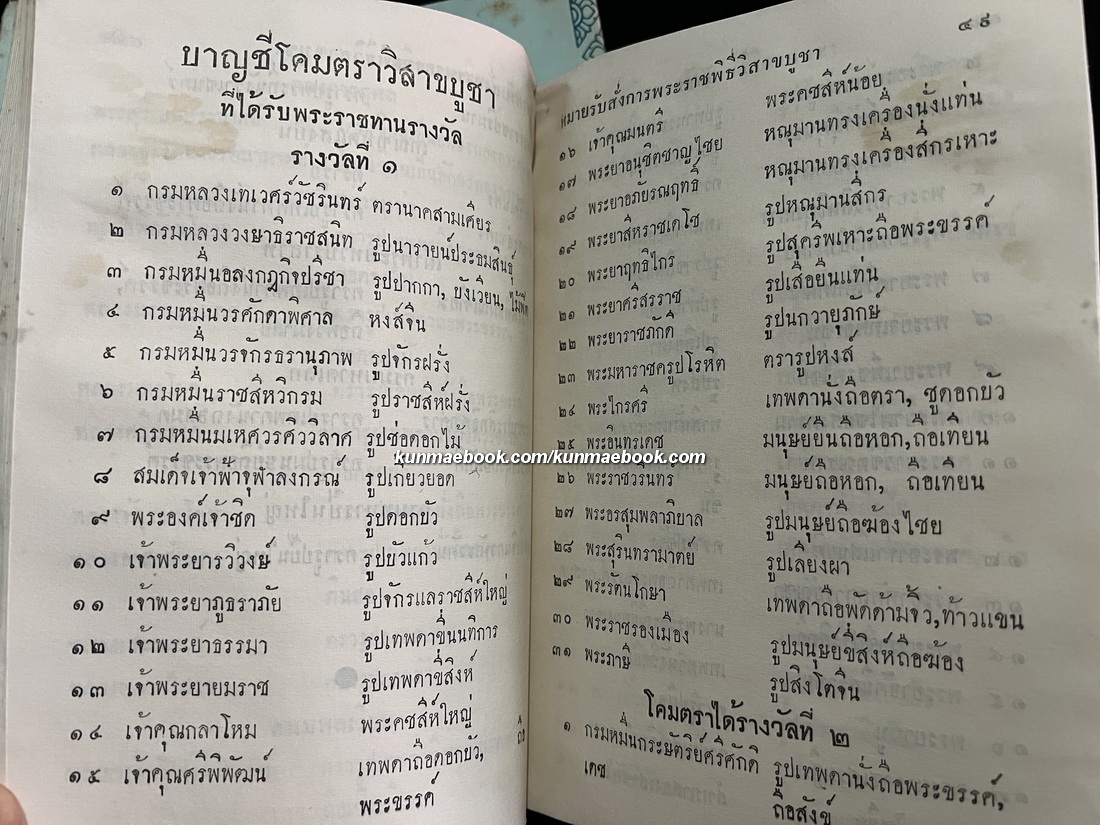 บาญชีโคมตราวิสาขบูชา
ที่ได้รับพระราชทานรางวัล
รางวัลที่ ๑
๑ กรมหลวงเทเวศร์วัชรินทร์ ตรานาคสามเศียร
๒ กรมหลวงวงษาธิราชสนิท รูปนารายน์ประธมสินธุ์
๓ กรมหมื่นอลงกฎกิจปริชา รูปปากกา, ยังเวียน, ไม้ฟืต
๔ กรมหมื่นวรศักดาพิศาล หงส์จีน
๕ กรมหมื่นวรจักรธรานุภาพ รูปจักรฝรั่ง
๖ กรมหมื่นราชสิหวิกรม รูปราชสีห์ฝรั่ง
๗ กรมหมื่นมเหศวรศิววิลาศ รูปช่อดอกไม้
๘ สมเด็จเจ้าฟ้าจุฬาลงกรณ์ รูปเกี้ยวยอด
๙ พระองค์เจ้าชิด รูปดอกบัว
๑๐ เจ้าพระยารวิวงษ์ รูปบัวแก้ว
๑๑ เจ้าพระยาภูธราภัย รูปจักรแลราชสีห์ใหญ่
๑๒ เจ้าพระยาธรรมา รูปเทพดาขี่นนทิการ
๑๓ เจ้าพระยายมราช รูปเทพดาขี่สิงห์
๑๔ เจ้าคุณกลาโหม พระคชสีห์ใหญ่
๑๕ เจ้าคุณศรีพิพัฒน์ เทพดาถือดอกบัว,
พระขรรค์
๔๙
หมายรับสั่งการพระราชพิธีวิสาขบูชา
๑๖ เจ้าคุณมนตรี พระคชสีห์น้อย
๑๗ พระยาอนุชิตชาญไชย หณุมานทรงเครื่องนั่งแท่น
๑๘ พระยาอภัยรณฤทธิ์ หณุมานทรงเครื่องสี่กรเหาะ
๑๙ พระยาสีหราชเดโช รูปหณุมานสี่กร
๒๐ พระยาฤทธิไกร รูปสุครีพเหาะถือพระขรรค์
๒๑ พระยาศรีสรราช รูปเสือยืนแท่น
๒๒ พระยาราชภักดี รูปนกวายุภักษ์
๒๓ พระมหาราชครูปโรหิต ตรารูปหงส์
๒๔ พระไกรศรี เทพดานั่งถือตรา, ชูดอกบัว
๒๕ พระอินทรเดช มนุษย์ยืนถือหอก,ถือเทียน
๒๖ พระราชวรินทร์ มนุษย์ถือหอก, ถือเทียน
๒๗ พระอรสุมพลาภิบาล รูปมนุษย์ถือฆ้องไชย
๒๘ พระสุรินทรามาตย์ รูปเลียงผา
๒๙ พระรัตนโกษา เทพดาถือพัดด้ามจิ้ว,ท้าวแขน
๓๐ พระราชรองเมือง รูปมนุษย์ขี่สิงห์ถือฆ้อง
๓๑ พระภาษี รูปสิงโตจีน
โคมตราได้รางวัลที่ ๒
๑ กรมหมื่นกระษัตริย์ศรีศักดิ รูปเทพดานั่งถือพระขรรค์,
เดช ถือสังข์
kunmaebook.com/kunmaebook.com